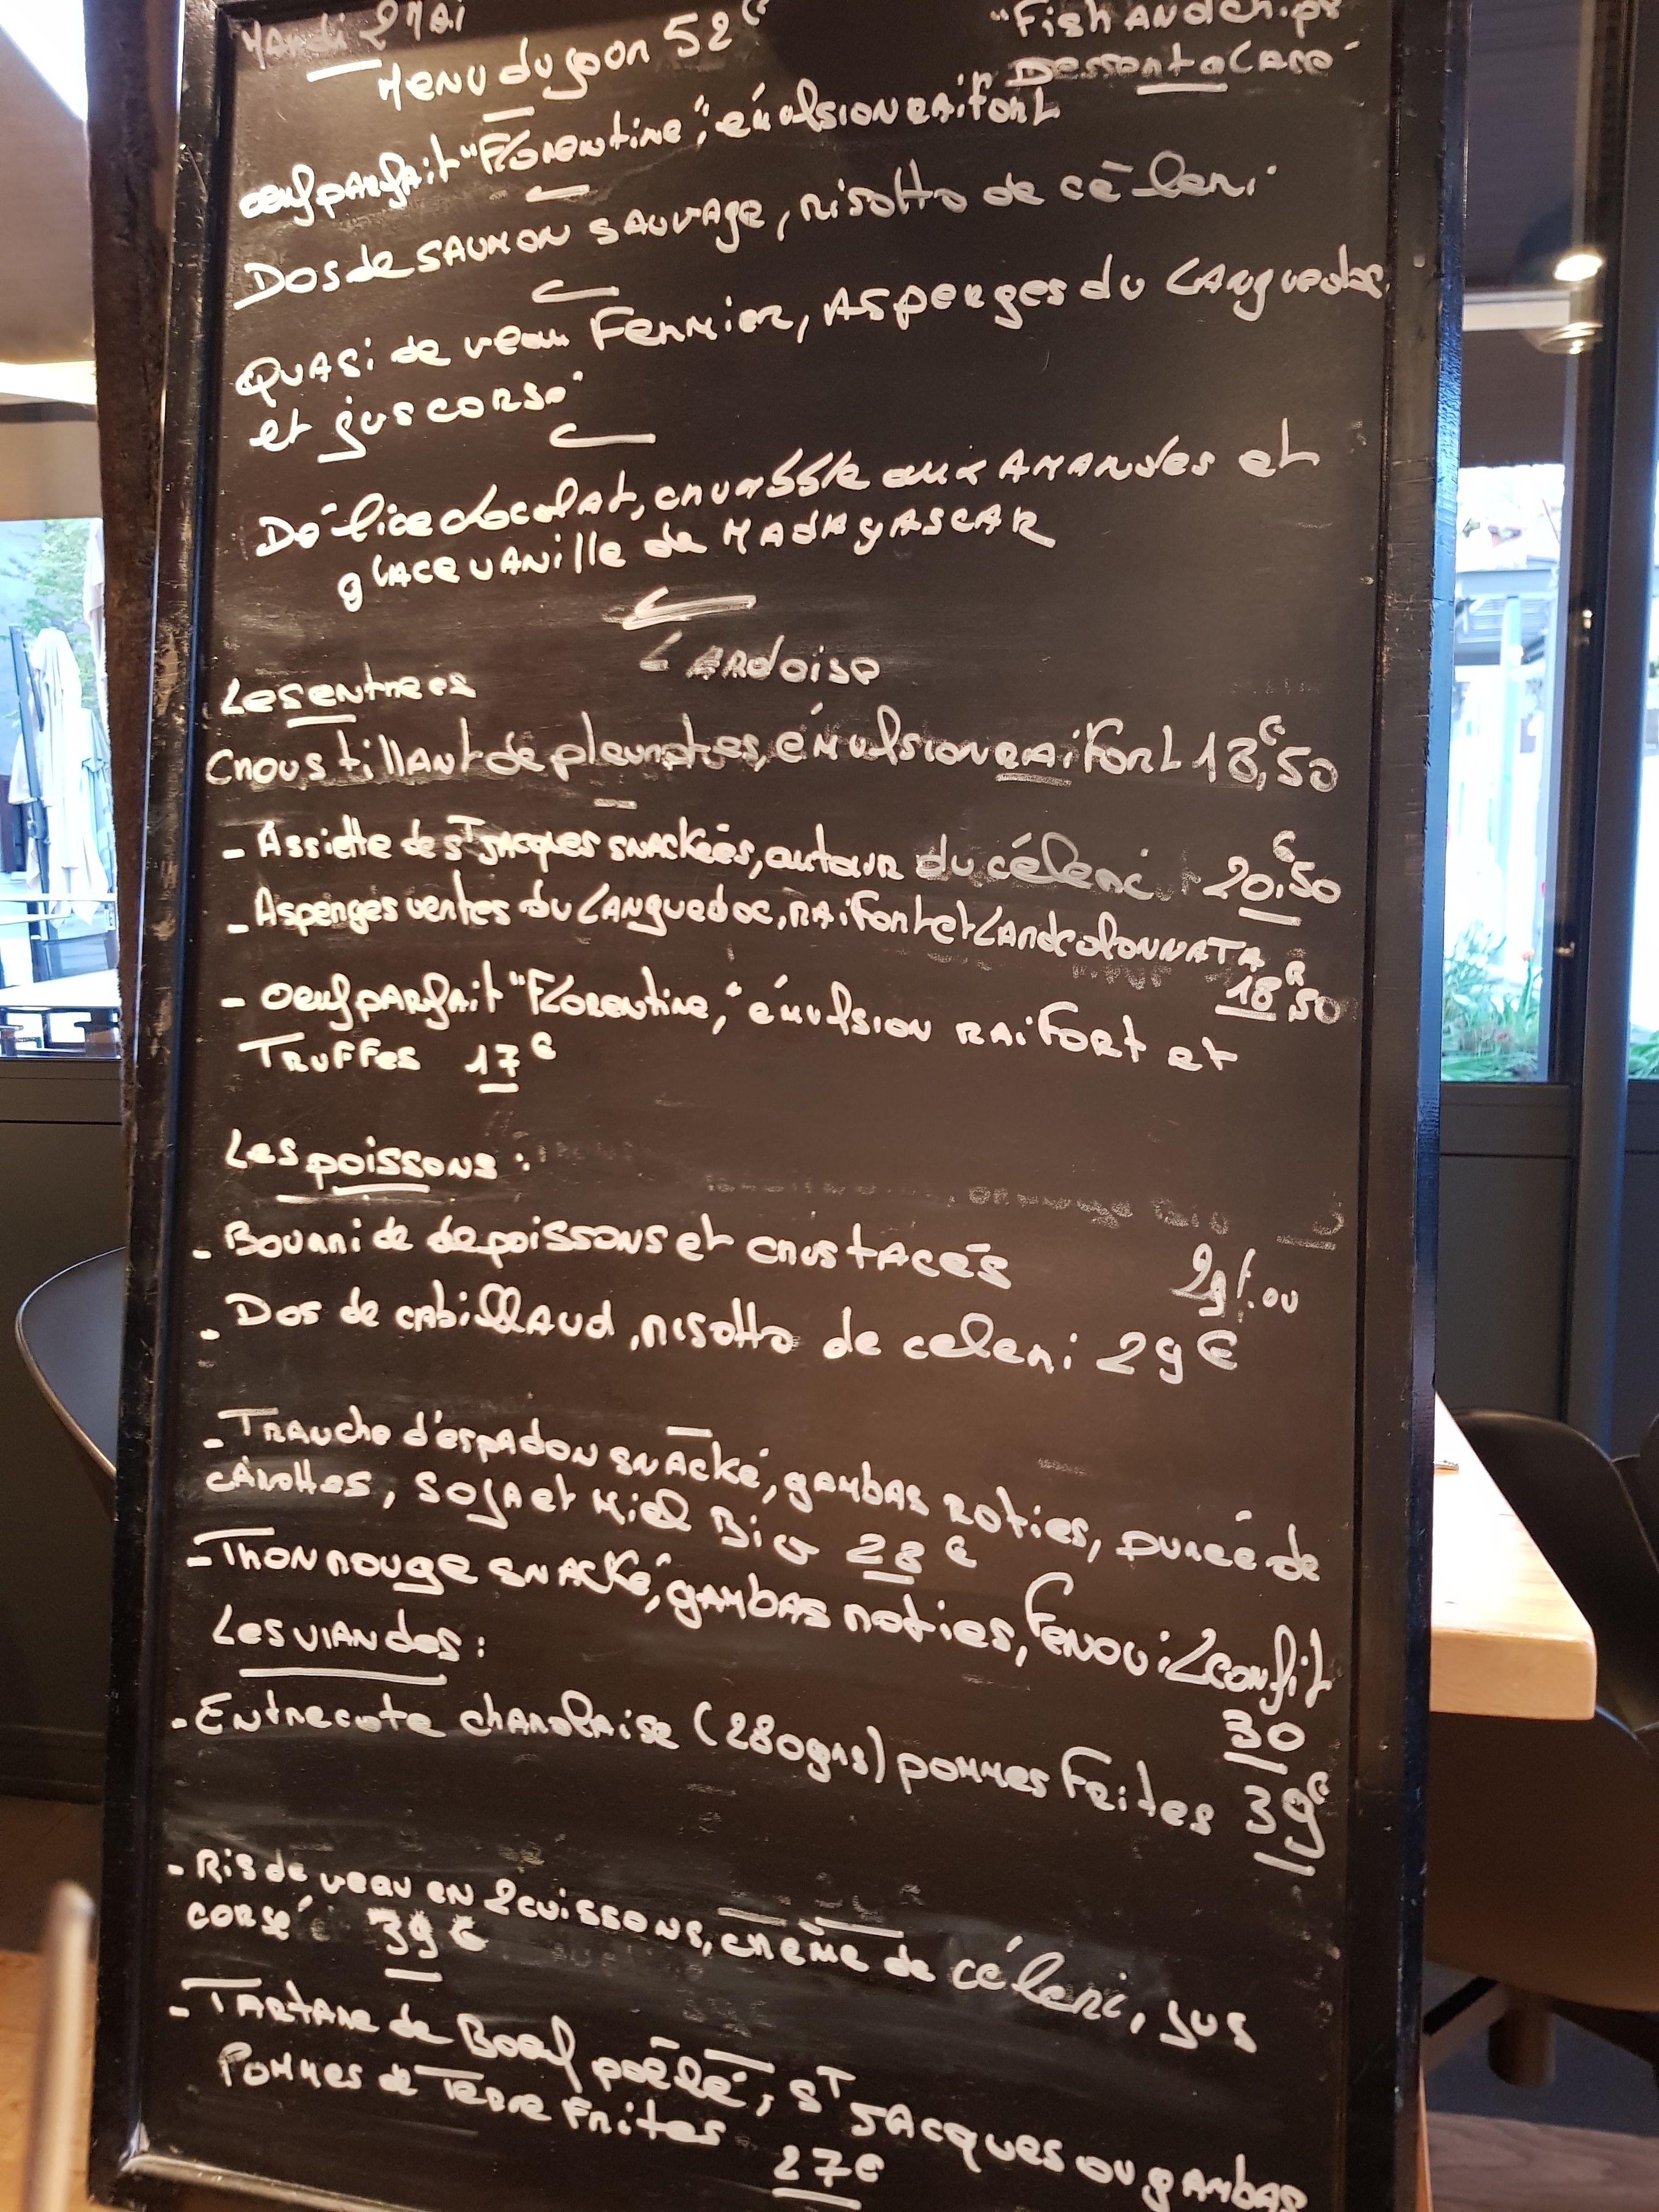 Mardi 2 Mai
"Fish and chips
Menu du soir 52€
Dessert a Caro"
oeuf parfait "Florentine", émulsion raifort
Dos de saumon sauvage, risotto de céleri
Quasi de veau Fermier, Asperges du Languedoc
et jus corsé
Délice chocolat, crumble aux amandes et
glace vanille de Madagascar
L'ardoise
Les entrees
Croustillant de pleurotes, émulsion raifort 18€,50
- Assiette de St Jacques snackées, autour du céleri 20€,50
- Asperges vertes du Languedoc, raifort et Lard colonnata
18€,50
- Oeuf parfait "Florentine", émulsion raifort et
Truffes 17€
Les poissons :
- Bourride de poissons et crustacés 29€.00
- Dos de cabillaud, risotto de celeri 29€
- Tranche d'espadon snacké, gambas roties, purée de
carottes, soja et miel Bio 28€
- Thon rouge snacké, gambas roties, Fenouil confit
30
Les viandes :
- Entrecote charolaise (280grs) pommes Frites 39€
- Ris de veau en 2 cuissons, crème de céleri, jus
corsé 39€
- Tartare de Boeuf poêlé, St Jacques ou gambas
Pommes de Terre Frites 27€